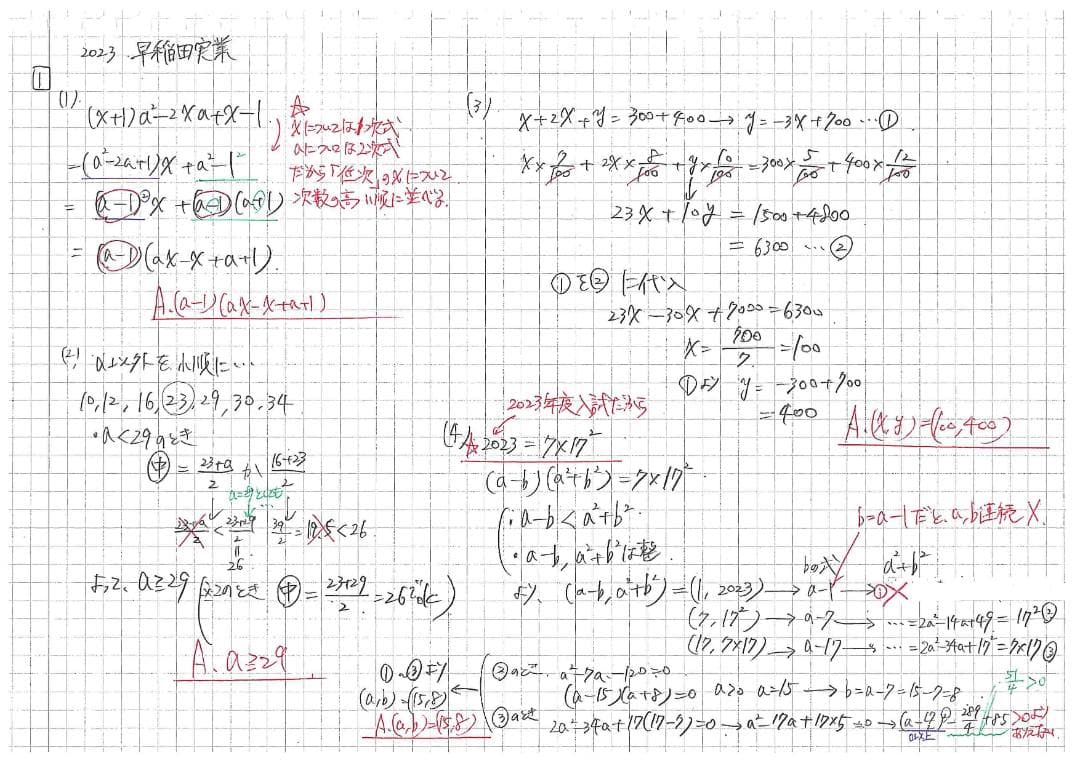 2023 早稲田実業
1
(1).
(x+1)a²-2xa+x-1
=(a²-2a+1)x+a²-1²
=(a-1)²x+(a-1)(a+1)
=(a-1)(ax-x+a+1)
A.(a-1)(ax-x+a+1)
☆
xについては1次式
aについては2次式
だから「低次」のxについて
次数の高い順に並べる.
(2) a以外を小順に…
10,12,16,23,29,30,34
・a<29のとき
中=23+a/2 か 16+23/2
a=29としても
23+a/2<23+29/2 39/2=19.5<26
=26
よって、a≧29 (a≧29のとき 中=23+29/2=26でok)
A. a≧29
(3)
x+2x+y=300+400→y=-3x+700…①
x×7/100+2x×8/100+y×10/100=300×5/100+400×12/100
23x+10y=1500+4800
=6300…②
①を②に代入
23x-30x+7000=6300
x=700/7=100
①より y=-300+700
=400
A.(x,y)=(100,400)
2023年度入試だから
(4) ☆2023=7×17²
(a-b)(a²+b²)=7×17²
・a-b<a²+b²
・a-b,a²+b²は整
b=a-1だと、a,b連続×
bの式 a²+b²
より、(a-b,a²+b²)=(1,2023)→a-1→①×
(7,17²)→a-7→…=2a²-14a+49=17²②
(17,7×17)→a-17→…=2a²-34a+17²=7×17③
①~③より
(a,b)=(15,8)
A.(a,b)=(15,8)
②のとき. a²-7a-120=0
(a-15)(a+8)=0 a>0 a=15→b=a-7=15-7=8
③のとき 2a²-34a+17(17-7)=0→a²-17a+17×5=0→(a-17/2)²-289/4+85>0より
0以上
51/4>0